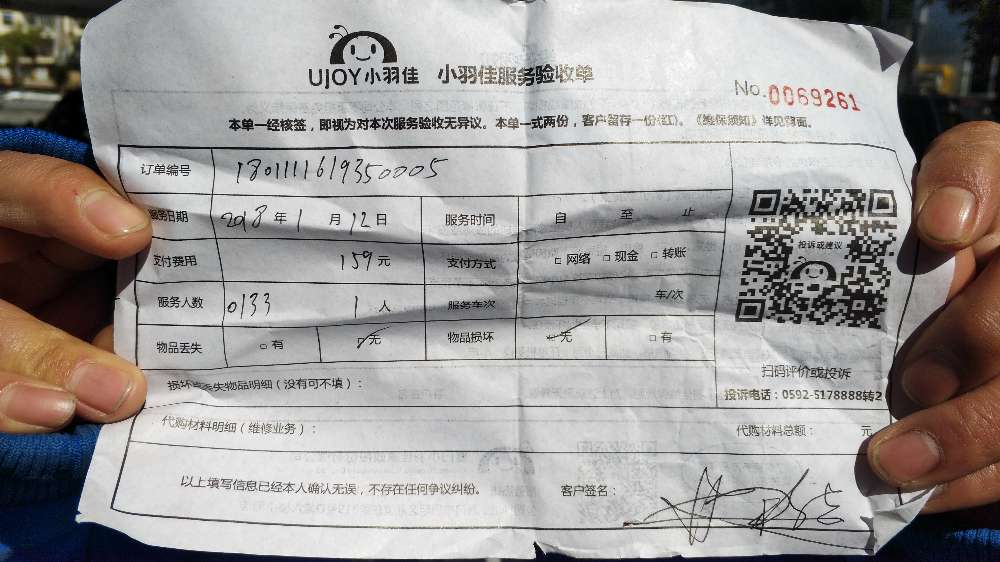 UJOY小羽佳 小羽佳服务验收单
No.0069261
本单一经核签，即视为对本次服务验收无异议。本单一式两份，客户留存一份(红)。《维保须知》详见背面。
订单编号 1801111619350005
服务日期 2018年1月12日 服务时间 自 至 止
支付费用 159元 支付方式 □网络 □现金 □转账
服务人数 0133 1人 服务车次 车/次
物品丢失 □有 ☑无 物品损坏 ☑无 □有
投诉或建议
扫码评价或投诉
投诉电话：0592-5178888转2
损坏或丢失物品明细（没有可不填）：
代购材料明细（维修业务）： 代购材料总额： 元
以上填写信息已经本人确认无误，不存在任何争议纠纷。 客户签名：